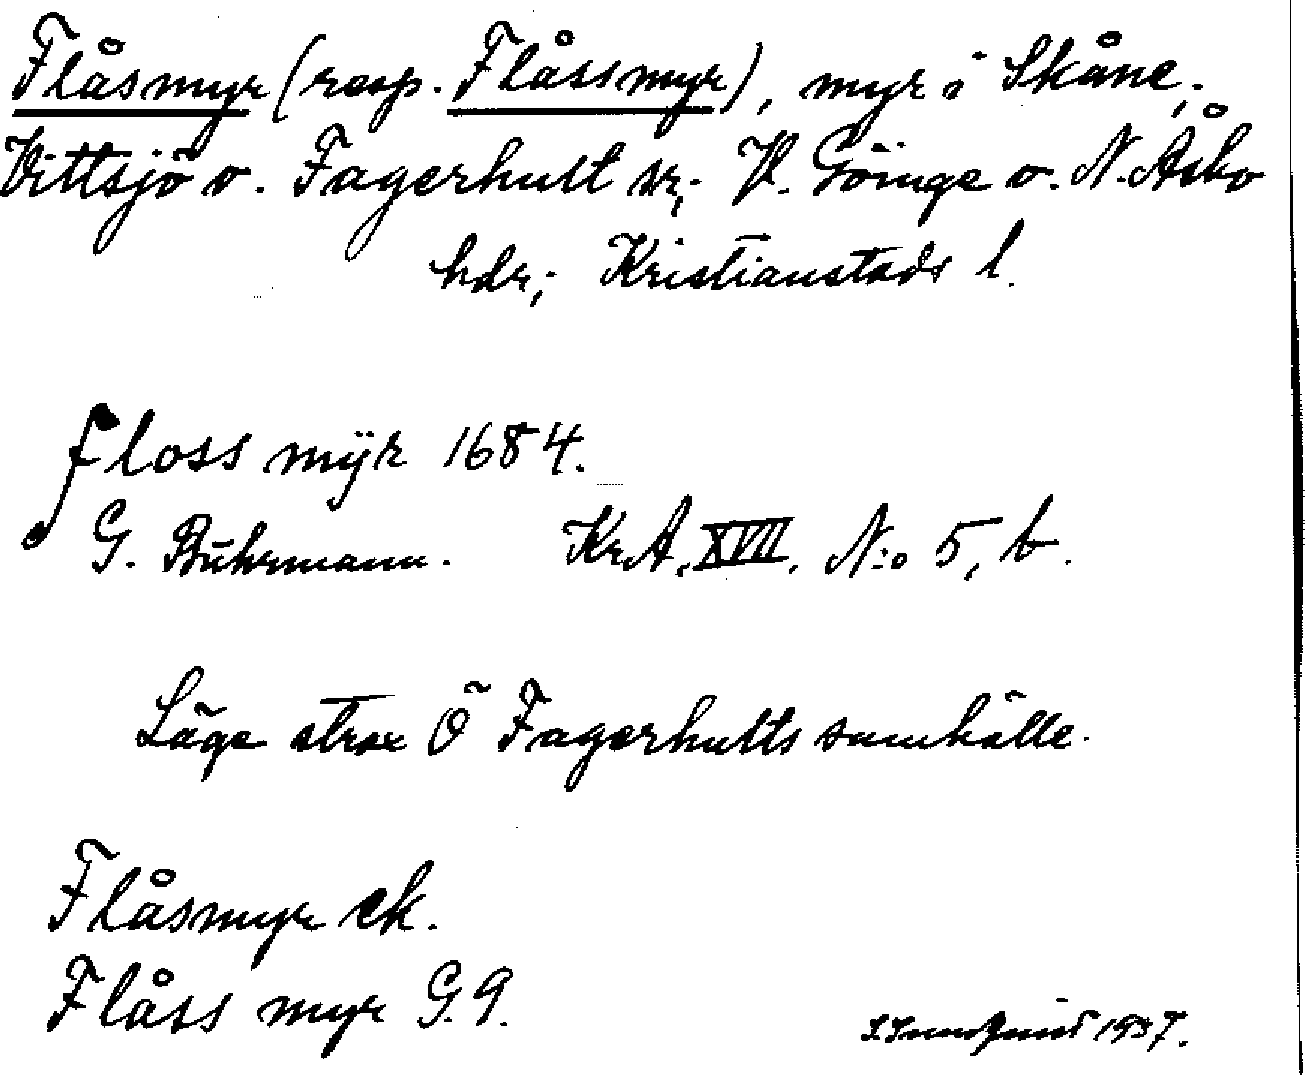 Flåsmyr (resp. Flåssmyr), myr i Skåne;
Vittsjö o. Fagerhult sr; V. Göinge o. N. Åsbo
hdr; Kristianstads l.
floss mÿr 1684.
G. Buhrmann. KrA. XVII. N:o 5, b.
Läge strax Ö Fagerhults samhälle.
Flåsmyr ek.
Flåss myr G.9.
Sundquist 1937.